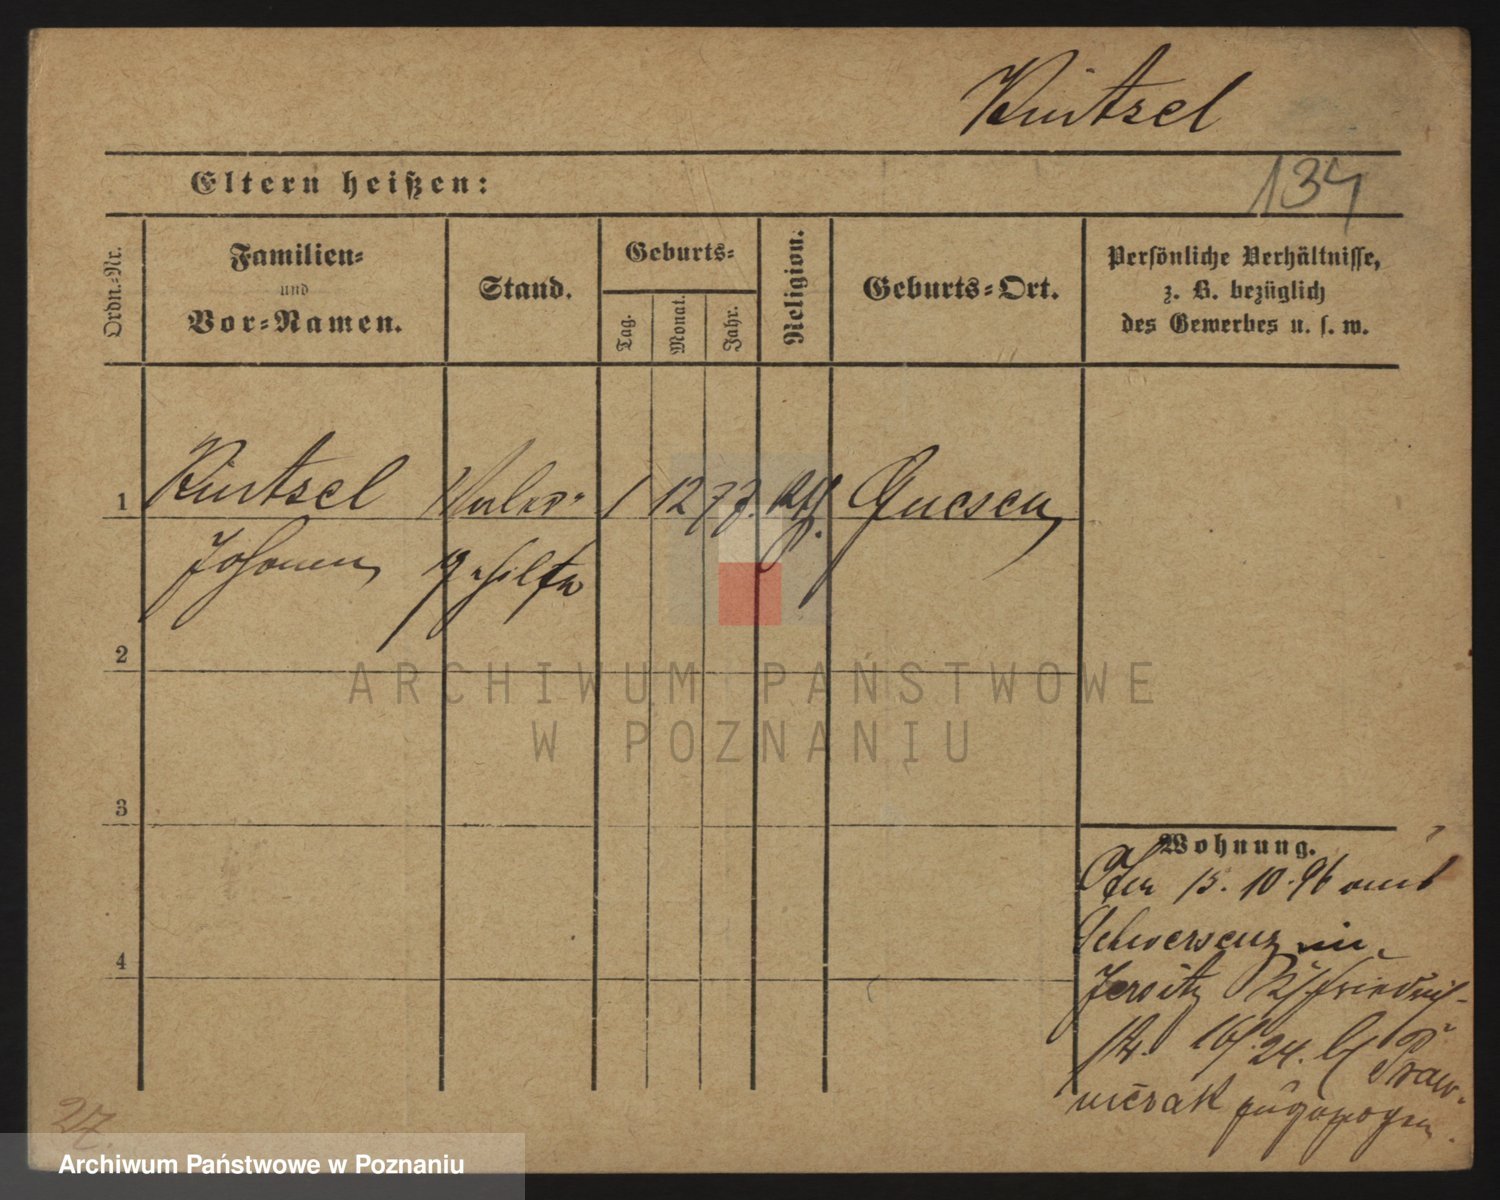 Kintzel
134
Eltern heißen:
Ordn.=Nr.
Familien=
und
Vor=Namen.
Stand.
Geburts=
Tag.
Monat.
Jahr.
Religion.
Geburts=Ort.
Persönliche Verhältnisse,
z. B. bezüglich
des Gewerbes u. s. w.
1
Maler
1 12 77.
Gnesen
Johann
gehilfe
2
3
4
Wohnung.
15. 10. 96 aus
Schwersenz in
Jersitz Friedrich-
str. 24. b/ Praw-
nierak zugezogen.
27.
ARCHIWUM PAŃSTWOWE
W POZNANIU
Archiwum Państwowe w Poznaniu